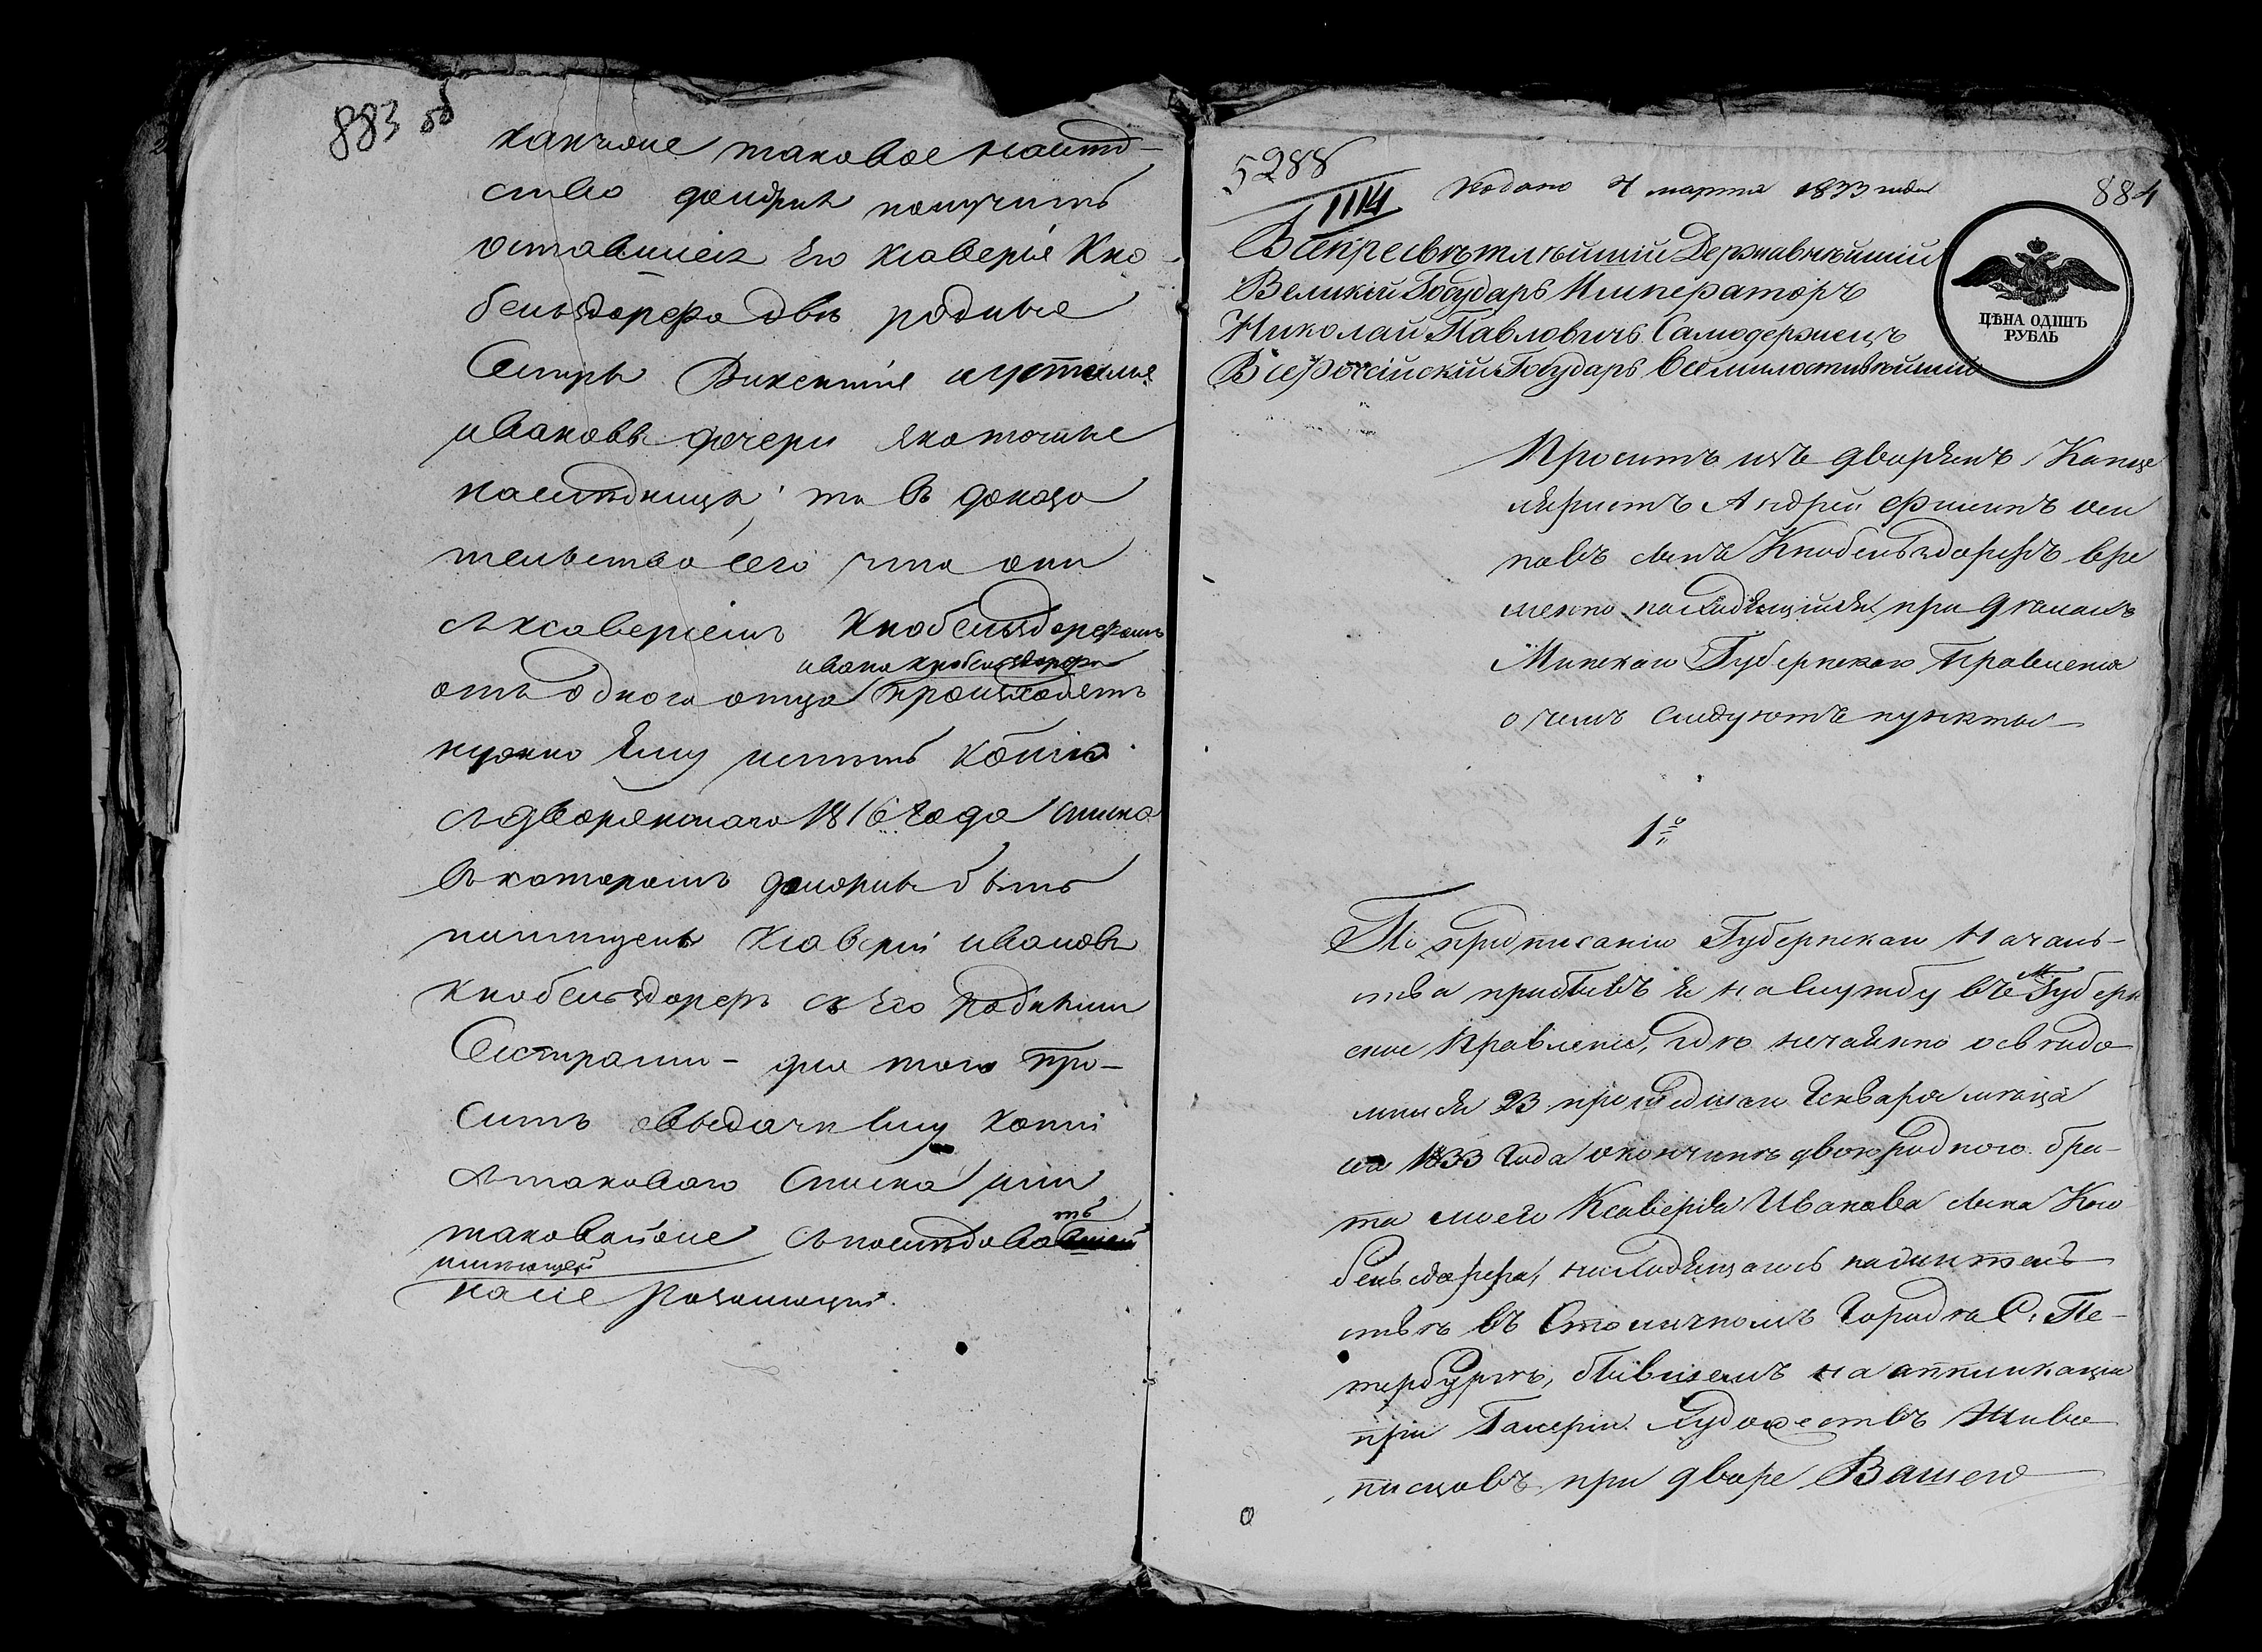 883 об
какъвое таковое наслѣд-
ство должна получить
оставшіеся Его Ксаверія Кно-
бельздорфа двѣ родные
Сестры Викентія и
Ивановы дочери яко точные
наслѣдницы, то въ доказа
тельство сего что они
съ Ксаверіемъ Кнобельздорфомъ
Ивана Кнобельздорфа
отъ одного отца происходятъ
нужно Ему имѣть копію
съ дворянскаго 1816 года списка
въ которомъ долженъ быть
помѣщенъ Ксаверій Ивановъ
Кнобельздорфъ съ Его родными
Сестрами - для того про-
ситъ о выдачи Ему копіи
съ таковаго списка или
таковой же съ послѣдовать
имѣющей
на сіе резолюціи.
5288
1114
подано 4 марта 1833 года
884
Всепресвѣтлѣйшій Державнѣйшій
Великій Государь Императоръ
Николай Павловичъ Самодержецъ
Всероссійскій Государь Всемилостивѣйшій
ЦѢНА ОДИНЪ
РУБЛЬ
Проситъ изъ дворянъ Канце
ляристъ Андрей Филипъ Оси
повъ сынъ Кнобельздорфъ вре
менно находящійся при дѣлахъ
Минскаго Губернскаго Правленія
о чемъ слѣдуютъ пункты
1е
По предписанію Губернскаго Началь-
ства прибывъ я на службу въ М. Губерн
ское Правленіе, гдѣ нечаянно освѣдо
мился 23 прошедшаго Января мѣсяца
сего 1833 Года о кончинѣ двоюроднаго бра-
та моего Ксаверія Иванова сына Кно
бельсдорфа, находящагося на жительс
твѣ въ Столичномъ Городѣ С. Пе-
тербургѣ, бывшемъ на аппликаціи
при Галереи Художествъ Живо
писцовъ при дворе Вашего